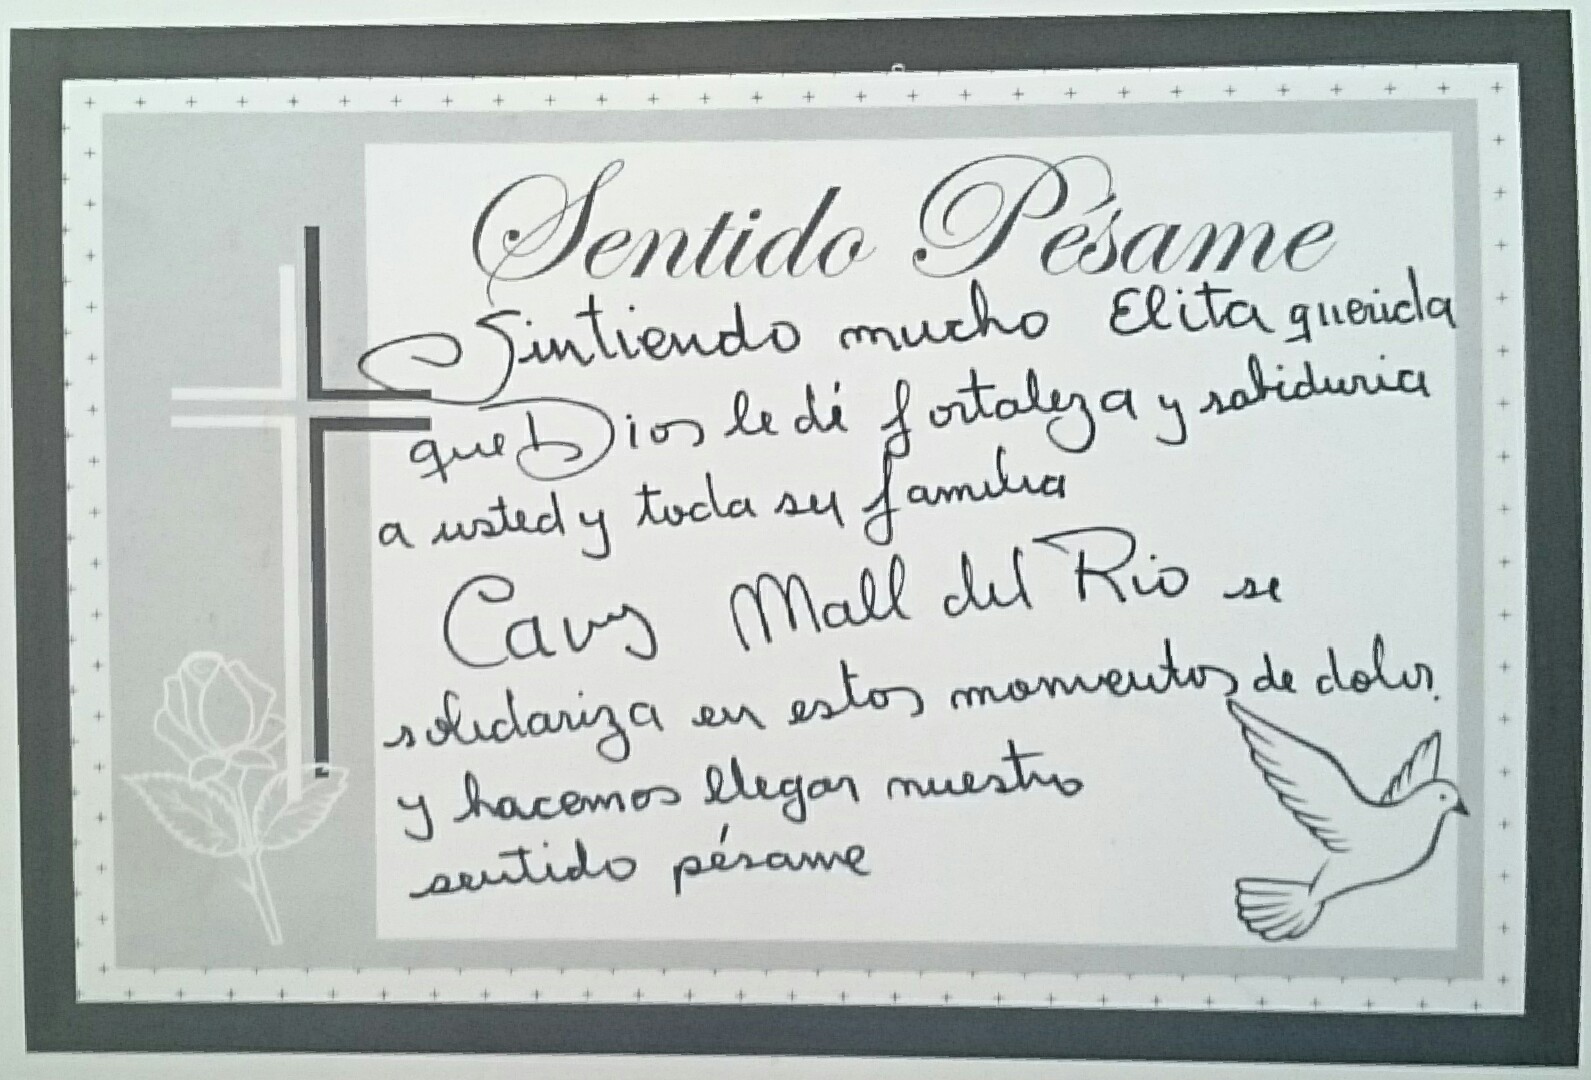 Sentido Pésame
Sintiendo mucho Elita querida
que Dios le dé fortaleza y sabiduria
a usted y toda su familia
Cavs Mall del Rio se
solidariza en estos momentos de dolor.
y hacemos llegar nuestro
sentido pésame